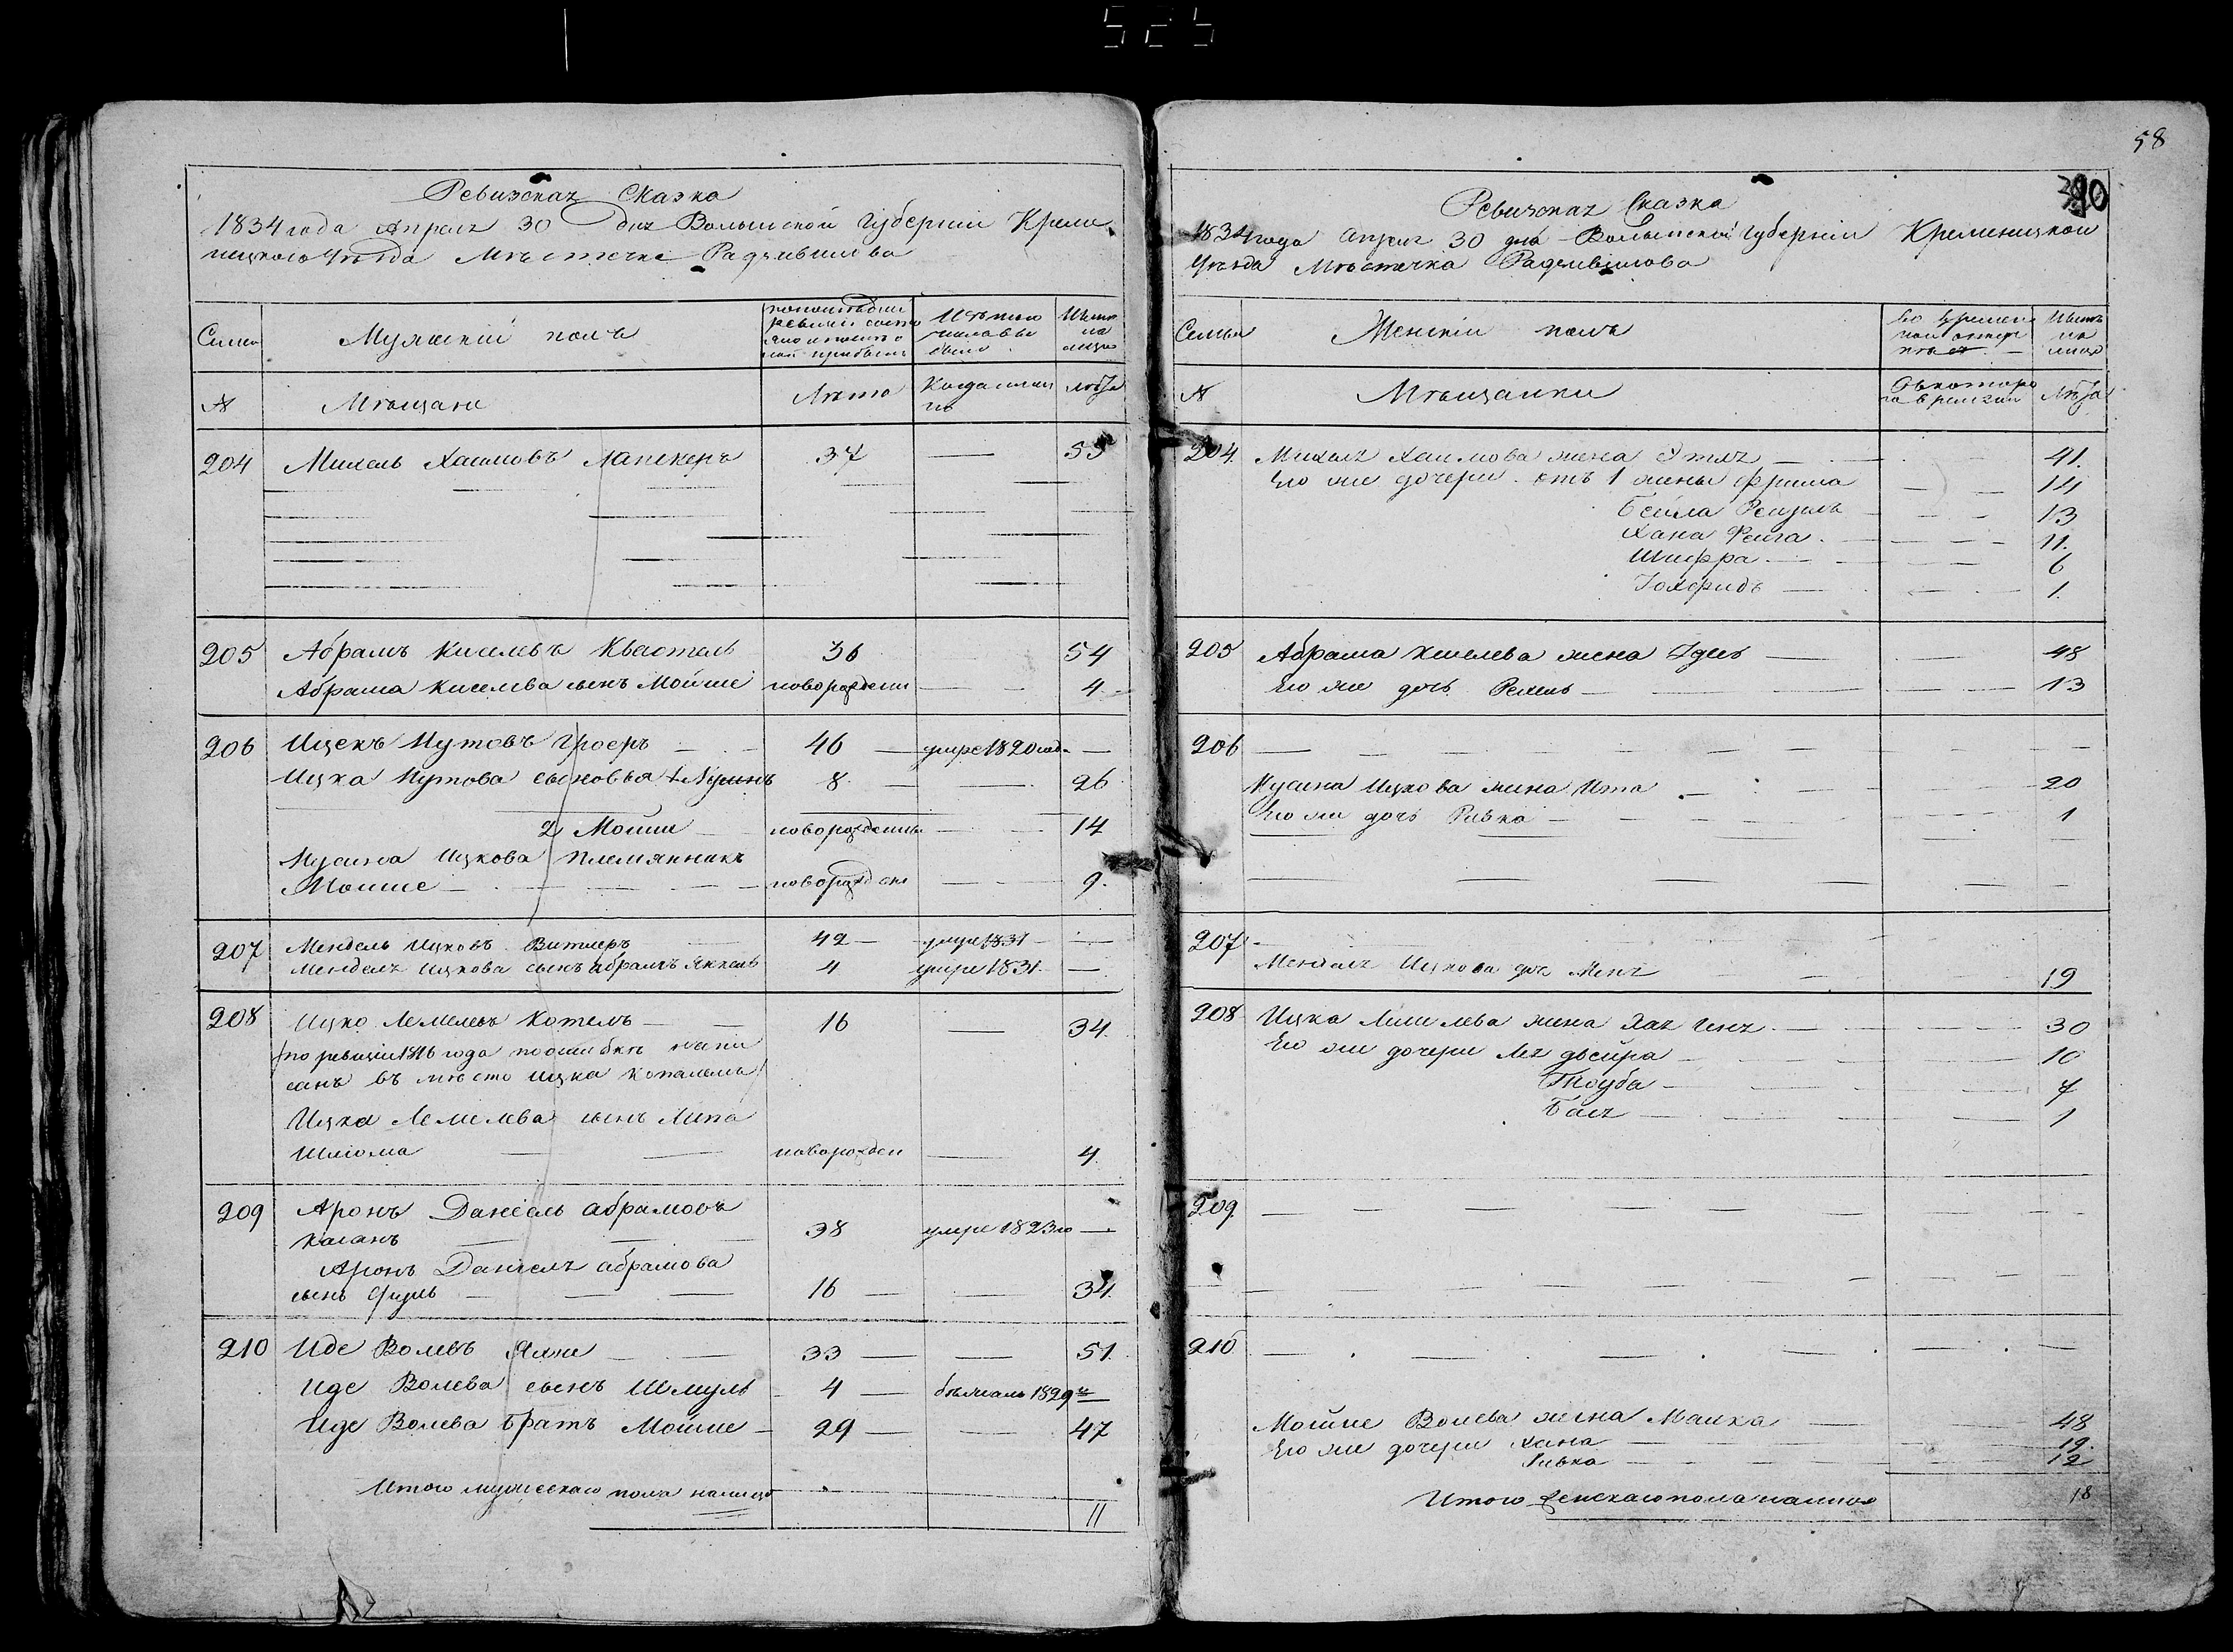 525
Ревизская Сказка
1834 года Апреля 30 дня Волынской Губернии Креме-
нецкого Уезда Местечка Радзивилова
Семьи
Мужский полъ
Изъ того числа выбыло
Ныне на лицо
№
Мещане
Лета
Когда именно
Лета
204 Михель Хаимовъ Лапекеръ 37 — 55
205 Абрамъ Киселевъ Квастель 36 54
Абрама Киселева сынъ Мойше новорожден — 4
206 Ицекъ Нутовъ Гроеръ 46 — умре 1820 года —
Ицка Нутова сыновья 1 Нусинъ 8 — 26
2 Мойше новорожденны — 14
Нусина Ицкова племянникъ
Мошше — новорожден — 9.
207 Мендель Ицковъ Витлеръ 42 — умре 1831 —
Менделя Ицкова сынъ Абрамъ Янкель 4 умре 1831. —
208 Ицко Лемелевъ Котелъ 16 — 34.
/по ревизии 1816 года по ошибке напи
санъ въ место Ицка Копалемъ/
Ицка Лемелева сынъ Липа
Шлiома — новорожден — 4.
209 Аронъ Данiель Абрамовъ
Каганъ — 38 умре 1823 го —
Аронъ Данiеля Абрамова
сынъ Фишль 16 — 34.
210 Иде Волевъ 33 — 51.
Иде Волева сынъ Шмуль 4 — бежалъ 1829 —
Иде Волева братъ Мойше — 29 — 47
Итого мужескаго пола налицо 11
58
90
Ревизская Сказка
1834 года Апреля 30 дня Волынской Губернiи Кременецкой
Уезда Местечка Радзивилова
Семьи
Женскiй полъ
Ныне на лицо
№
Мещанки
Лета
204. Михеля Хаимова жена Этля 41.
Его же дочери отъ 1 жены Фрима 14
Бейла Рейзль 13
Хана Фейга. 11.
Шифра. 6
1.
205 Абрама Киселева жена Идесъ 48
Его же дочь Рехель — 13
206 —
Нусина Ицкова жена Ита 20
Его же дочь Ривка — 1
207 —
Менделя Ицкова дочь 19
208 Ицка Лемелева жена Хая 30
Его же дочери Лея Двейра 10
Тоуба 7
Бася 1
209. —
210 —
Мошше Волева жена Малка 48
Его же дочери Хана 19.
Ривка 12
Итого женскаго пола налицо 18